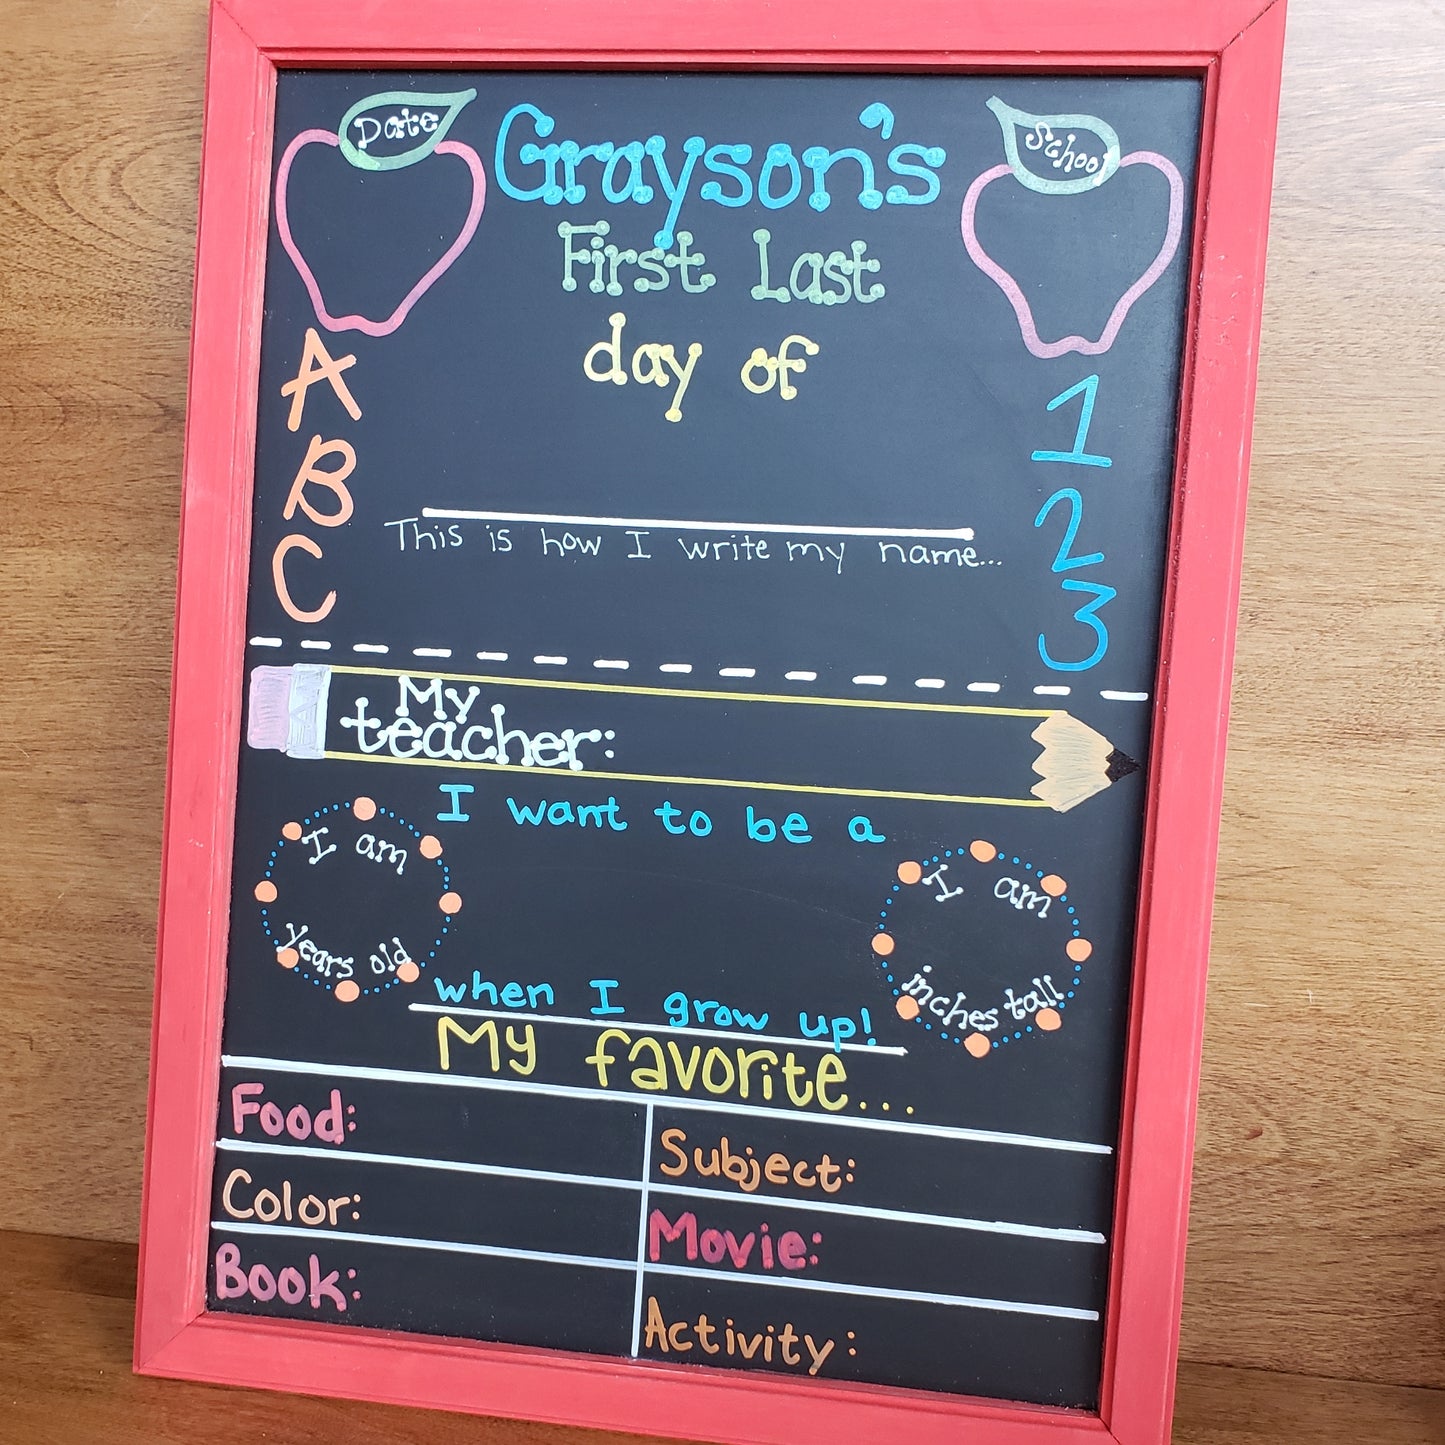 Date
Grayson's
School
First Last
day of
A
B
C
1
2
3
This is how I write my name...
My
teacher:
I want to be a
when I grow up!
I am
years old
I am
inches tall
My favorite...
Food:
Subject:
Color:
Movie:
Book:
Activity: